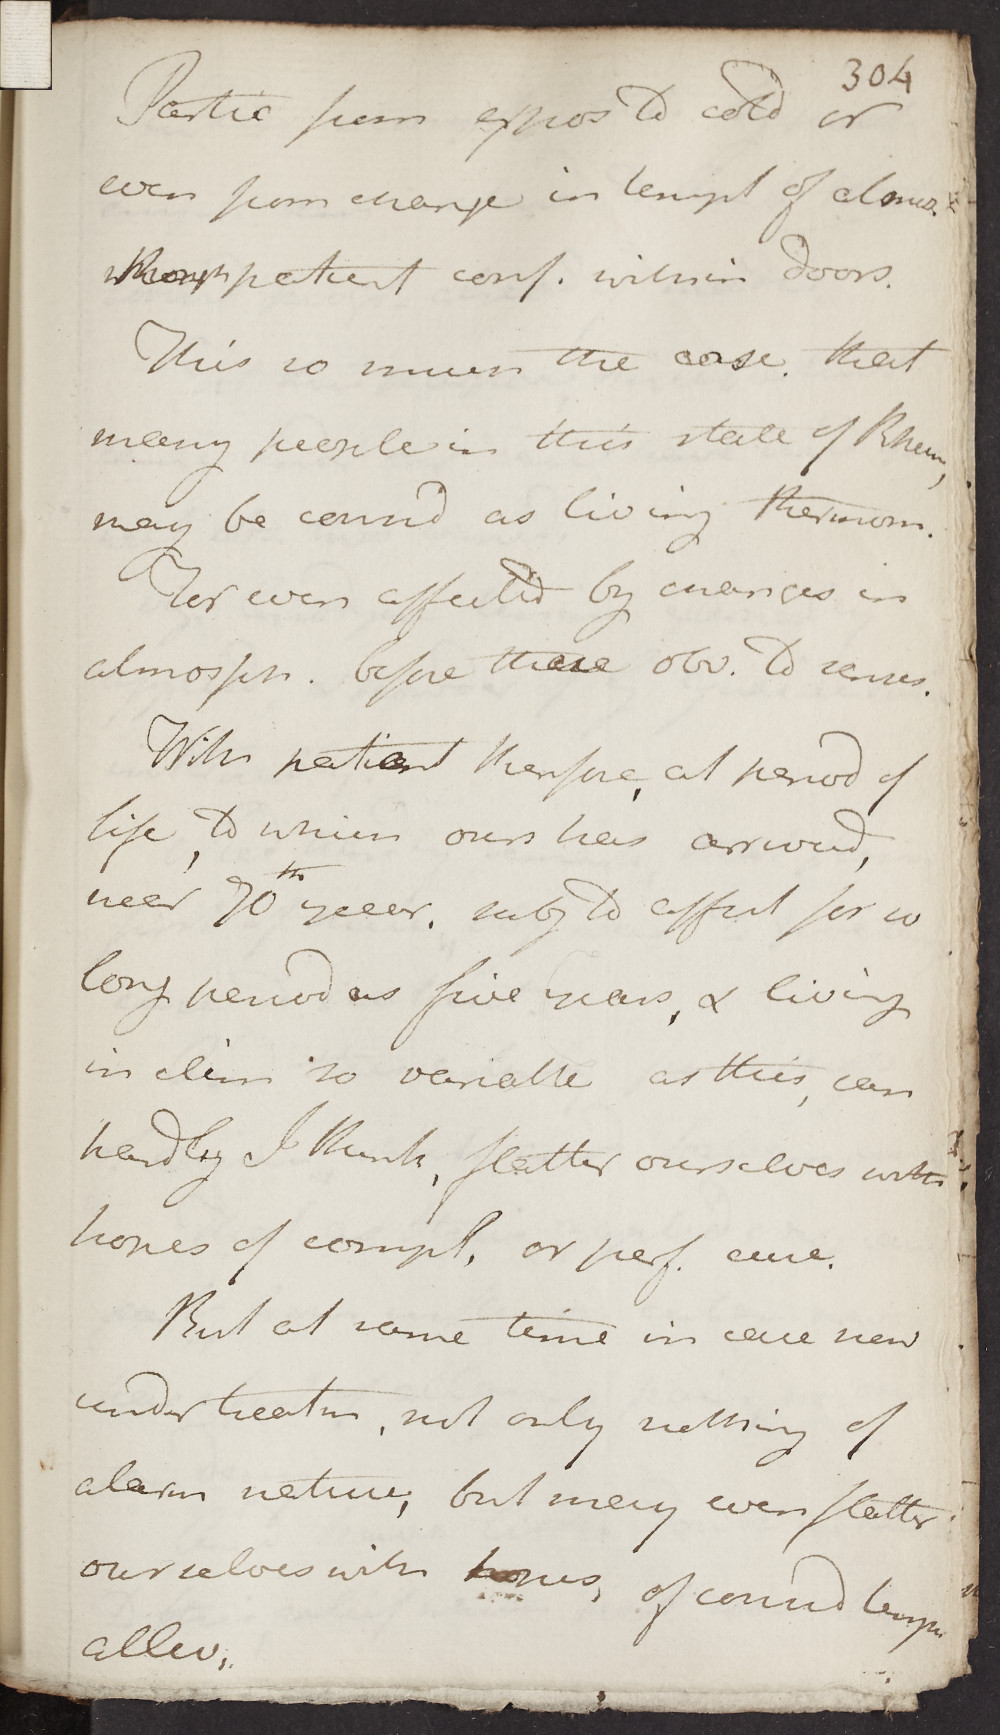 304
Partic from expos to cold or
even from change in tempt of atmos.
though patient conf. within doors.
This so much the case. that
many people in this state of Rheum,
may be consid as living thermom.
For even affected by changes in
atmosph. before these obv. to senses.
With patient therefore, at period of
life, to which ours has arrived,
near 70th year. subj to affect for so
long period as five years, & living
in clim so variable as this, can
hardly I think, flatter ourselves with
hopes of compl. or perf. cure.
But at same time in case now
under treatm, not only nothing of
alarm nature, but may even flatter
ourselves with hopes, of consid temp
allev.